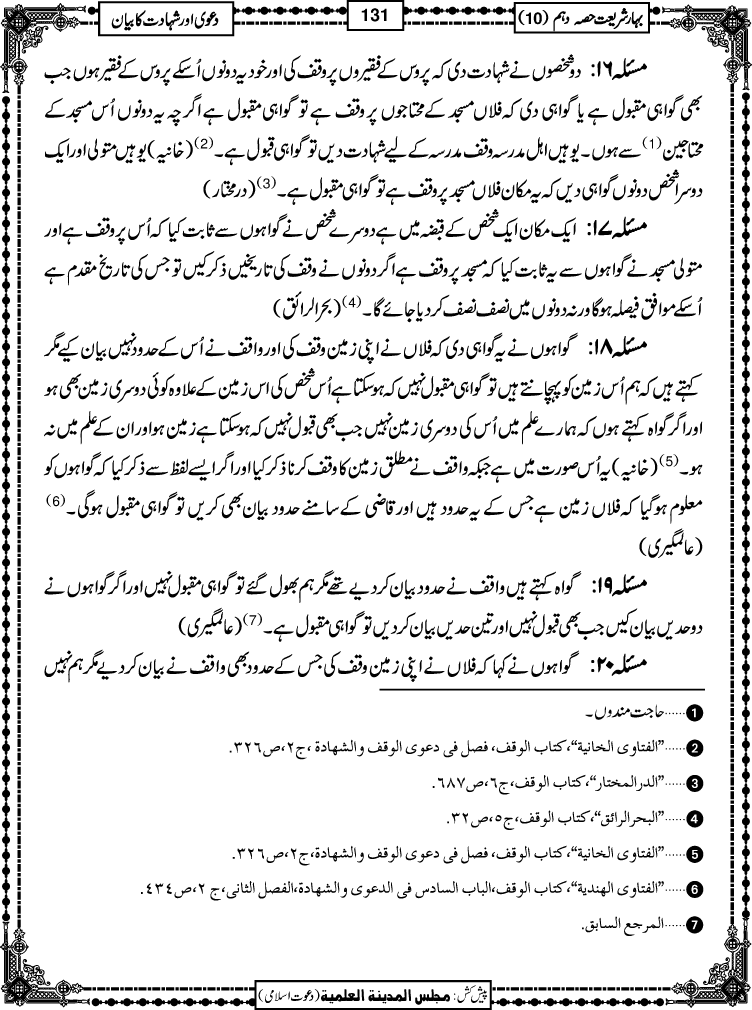 بہارِ شریعت حصہ دہم (10)
131
دعویٰ اور شہادت کا بیان
مسئلہ ۱۶: دو شخصوں نے شہادت دی کہ پروس کے فقیروں پر وقف کی اور خود یہ دونوں اُسکے پروس کے فقیر ہوں جب
بھی گواہی مقبول ہے یا گواہی دی کہ فلاں مسجد کے محتاجوں پر وقف ہے تو گواہی مقبول ہے اگرچہ یہ دونوں اُس مسجد کے
محتاجین(1) سے ہوں۔ یوہیں اہل مدرسہ وقف مدرسہ کے لیے شہادت دیں تو گواہی قبول ہے۔(2) (خانیہ) یوہیں متولی اور ایک
دوسرا شخص دونوں گواہی دیں کہ یہ مکان فلاں مسجد پر وقف ہے تو گواہی مقبول ہے۔(3) (درمختار)
مسئلہ ۱۷: ایک مکان ایک شخص کے قبضہ میں ہے دوسرے شخص نے گواہوں سے ثابت کیا کہ اُس پر وقف ہے اور
متولی مسجد نے گواہوں سے یہ ثابت کیا کہ مسجد پر وقف ہے اگر دونوں نے وقف کی تاریخیں ذکر کیں تو جس کی تاریخ مقدم ہے
اُسکے موافق فیصلہ ہوگا ورنہ دونوں میں نصف نصف کر دیا جائے گا۔(4) (بحرالرائق)
مسئلہ ۱۸: گواہوں نے یہ گواہی دی کہ فلاں نے اپنی زمین وقف کی اور واقف نے اُس کے حدود نہیں بیان کیے مگر
کہتے ہیں کہ ہم اُس زمین کو پہچانتے ہیں تو گواہی مقبول نہیں کہ ہوسکتا ہے اُس شخص کی اس زمین کے علاوہ کوئی دوسری زمین بھی ہو
اور اگر گواہ کہتے ہوں کہ ہمارے علم میں اُس کی دوسری زمین نہیں جب بھی قبول نہیں کہ ہوسکتا ہے زمین ہو اور ان کے علم میں نہ
ہو۔(5) (خانیہ) یہ اُس صورت میں ہے جبکہ واقف نے مطلق زمین کا وقف کرنا ذکر کیا اور اگر ایسے لفظ سے ذکر کیا کہ گواہوں کو
معلوم ہوگیا کہ فلاں زمین ہے جس کے یہ حدود ہیں اور قاضی کے سامنے حدود بیان بھی کریں تو گواہی مقبول ہوگی۔(6)
(عالمگیری)
مسئلہ ۱۹: گواہ کہتے ہیں واقف نے حدود بیان کردیے تھے مگر ہم بھول گئے تو گواہی مقبول نہیں اور اگر گواہوں نے
دو حدیں بیان کیں جب بھی قبول نہیں اور تین حدیں بیان کردیں تو گواہی مقبول ہے۔(7) (عالمگیری)
مسئلہ ۲۰: گواہوں نے کہا کہ فلاں نے اپنی زمین وقف کی جس کے حدود بھی واقف نے بیان کردیے مگر ہم نہیں
1......حاجت مندوں۔
2......"الفتاوی الخانیة"، کتاب الوقف، فصل فی دعوی الوقف والشهادة، ج٢، ص٣٢٦.
3......"الدرالمختار"، کتاب الوقف، ج٦، ص٦٨٧.
4......"البحرالرائق"، کتاب الوقف، ج٥، ص٣٢.
5......"الفتاوی الخانیة"، کتاب الوقف، فصل فی دعوی الوقف والشهادة، ج٢، ص٣٢٦.
6......"الفتاوی الهندیة"، کتاب الوقف، الباب السادس فی الدعوی والشهادة، الفصل الثانی، ج ٢، ص٤٣٤.
7......المرجع السابق.
پیش کش: مجلس المدینة العلمیة (دعوت اسلامی)